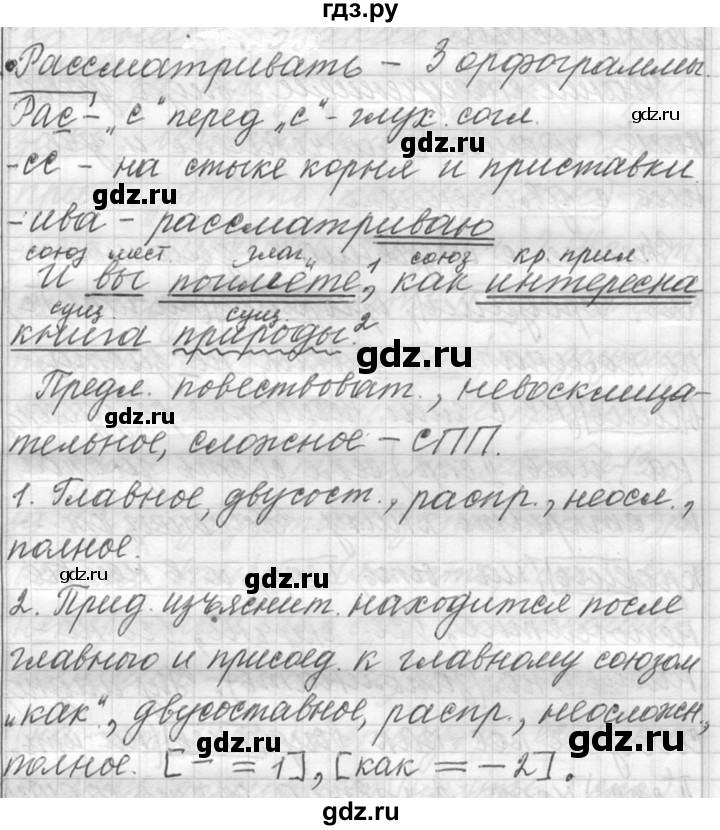 гдз.ру
Рассматривать – 3 орфограммы.
Рас- „с" перед „с" - глух. согл.
gdz.ru
gdz.ru
-сс - на стыке корня и приставки
gdz.ru
-ива - рассматриваю
союз мест. глаг. союз кр. прил.
И вы поймёте,¹ как интересна
сущ. сущ.
книга природы.²
gdz.ru
Предл. повествоват., невосклица-
gdz.ru
тельное, сложное – СПП.
gdz.ru
1. Главное, двусост., распр., неосл.,
полное.
gdz.ru
gdz.ru
2. Прид. изъяснит. находится после
главного и присоед. к главному союзом
gdz.ru
„как", двусоставное, распр., неосложн.,
gdz.ru
полное. [– = 1], [как = – 2].
gdz.ru
gdz.ru